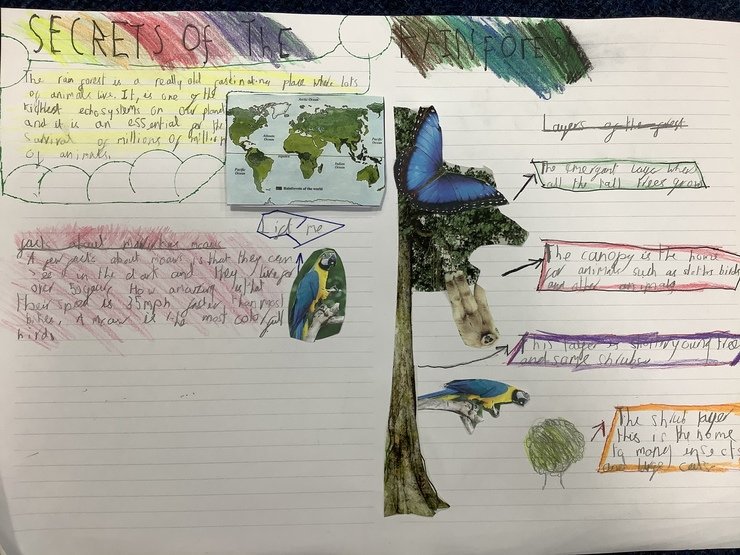 SECRETS OF The RAINFOREST
The rain forest is a really old fastinating place where lots
of animals live. It, is one of the
richest echosystems on our planet
and it is an essential for the
Survival of millions of millio
of animals.
Arctic Ocean
Atlantic
Ocean
Pacific
Ocean
Pacific
Ocean
Indian
Ocean
Equator
Rainforests of the world
Lift me
facts about
A few facts about macaws is that they can
see in the dark and they live for
over 50 years How amazing is that
Their speed is 35mph faster than most
bikes. A macaw is the most colorfull
birds
Layers of the forest
The emergant layer where
all the tall trees grow.
The canopy is the home
for animals such as sloths birds
and other animals
This layer is young tree
and some shrubs
The shrub layer
this is the home
to many insects
and large cats